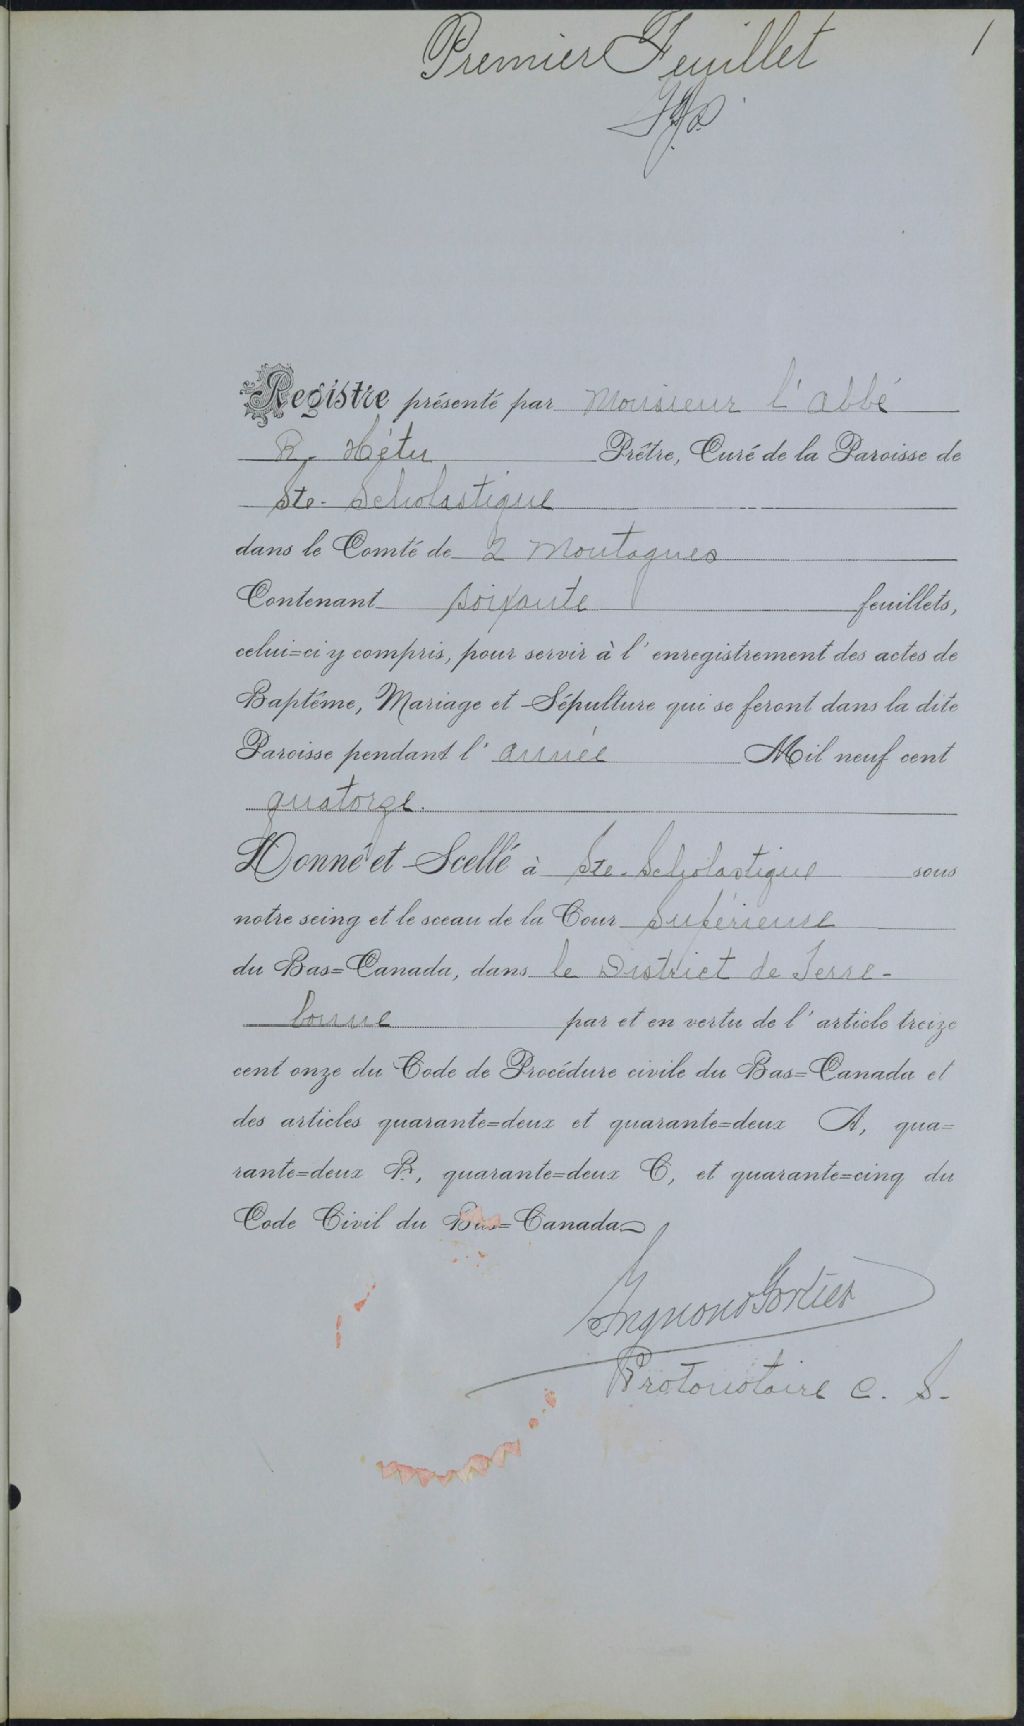 Premier Feuillet
1
Registre présenté par Monsieur l'abbé
R. Hétu Prêtre, Curé de la Paroisse de
Ste-Scholastique
dans le Comté de 2 Montagnes
Contenant soixante feuillets,
celui=ci y compris, pour servir à l'enregistrement des actes de
Baptême, Mariage et Sépulture qui se feront dans la dite
Paroisse pendant l'année Mil neuf cent
quatorze.
Donné et Scellé à Ste-Scholastique sous
notre seing et le sceau de la Cour Supérieure
du Bas=Canada, dans le District de Terre-
bonne par et en vertu de l'article treize
cent onze du Code de Procédure civile du Bas=Canada et
des articles quarante=deux et quarante=deux A, qua=
rante=deux B, quarante=deux C, et quarante=cinq du
Code Civil du Bas=Canada
Fortier
Protonotaire C. S.